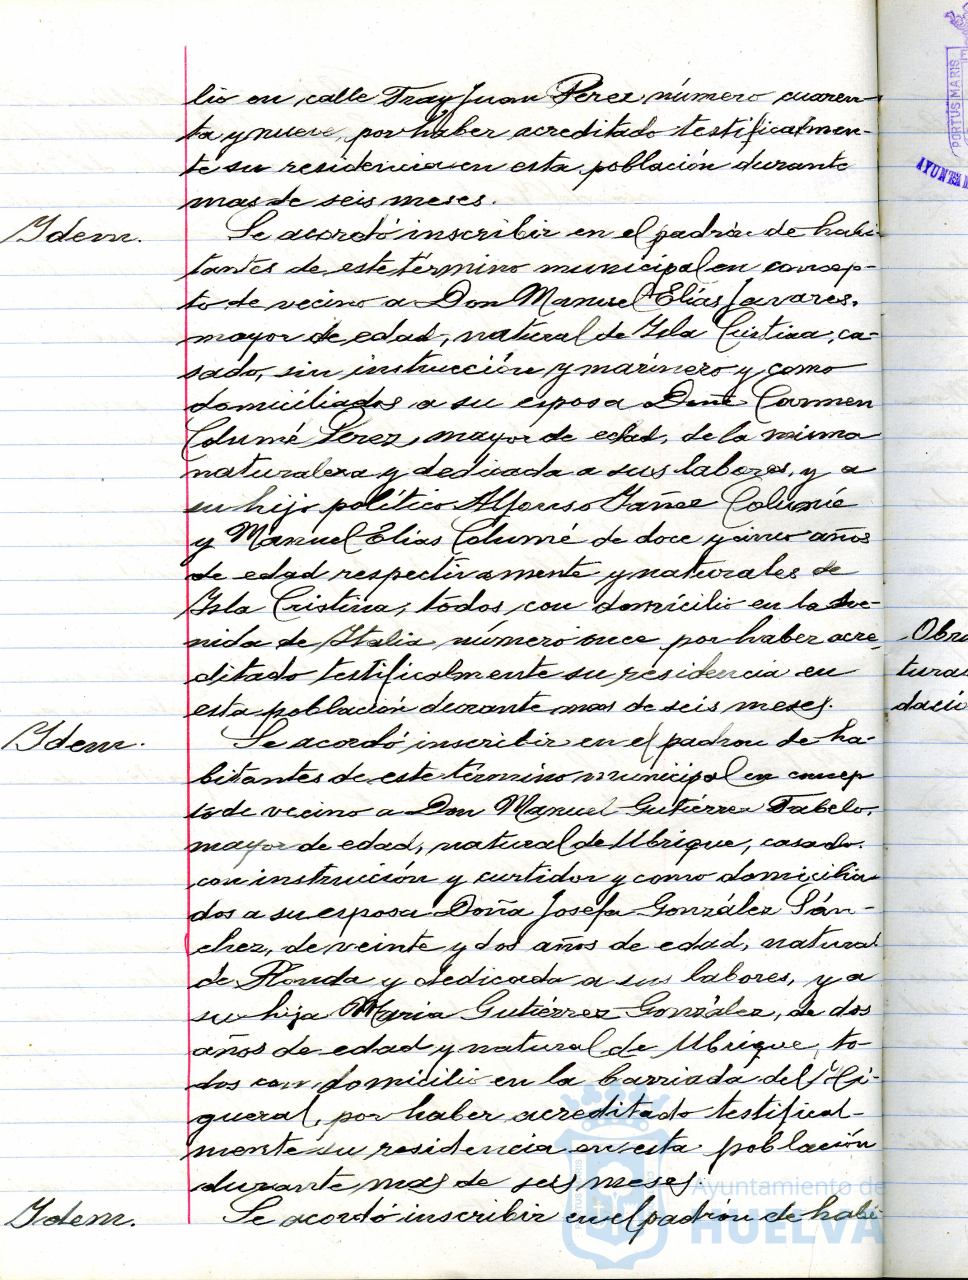 lio en calle Fray Juan Pérez número cuaren-
ta y nueve, por haber acreditado testificalmen-
te su residencia en esta población durante
mas de seis meses.
Idem.
Se acordó inscribir en el padrón de habi-
tantes de este término municipal en concep-
to de vecino a Don Manuel Elías Javares,
mayor de edad, natural de Isla Cristina, ca-
sado, sin instrucción y marinero y como
domiciliados a su esposa Doña Carmen
Columé Perez, mayor de edad, de la misma
naturaleza y dedicada a sus labores, y a
su hijo político Alfonso Yañez Columé
y Manuel Elias Columé de doce y cinco años
de edad respectivamente y naturales de
Isla Cristina, todos con domicilio en la Ave-
nida de Italia número once por haber acre-
ditado testificalmente su residencia en
esta población durante mas de seis meses.
Idem.
Se acordó inscribir en el padron de ha-
bitantes de este término municipal en concep
to de vecino a Don Manuel Gutiérrez Fabelo,
mayor de edad, natural de Ubrique, casado.
con instrución y curtidor y como domicilia-
dos a su esposa Doña Josefa González Sán-
chez, de veinte y dos años de edad, natural
de Ronda y dedicada a sus labores, y a
su hija Maria Gutiérrez González, de dos
años de edad y natural de Ubrique, to-
dos con domicilio en la barriada del Hi-
gueral, por haber acreditado testifical-
mente su residencia en esta población
durante mas de seis meses.
Idem.
Se acordó inscribir en el padron de habi-
PORTUS MARIS
AYUNTA
Obra
turas
dació
Ayuntamiento de
HUELVA